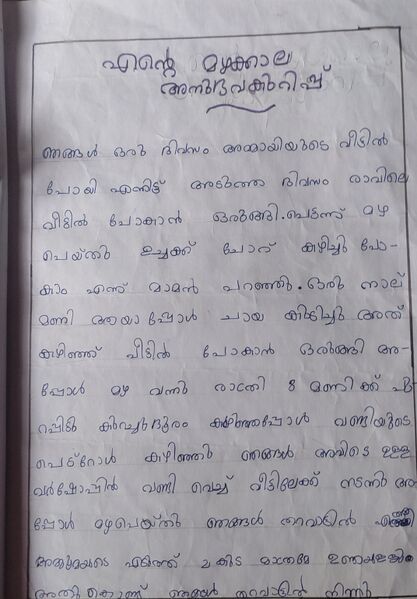 എന്റെ മഴക്കാല
അനുഭവകുറിപ്പ്
ഞങ്ങൾ ഒരു ദിവസം അമ്മായിയുടെ വീട്ടിൽ
പോയി എന്നിട്ട് അടുത്ത ദിവസം രാവിലെ
വീട്ടിൽ പോകാൻ ഒരുങ്ങി. പെട്ടന്ന് മഴ
പെയ്തു ഉച്ചക്ക് ചോറ് കഴിച്ചു പോ-
കാം എന്ന് മാമൻ പറഞ്ഞു. ഒരു നാല്
മണി ആയപ്പോൾ ചായ കുടിച്ചു അത്
കഴിഞ്ഞ് വീട്ടിൽ പോകാൻ ഒരുങ്ങി അ-
പ്പോൾ മഴ വന്നു രാത്രി 8 മണിക്ക് പു
റപ്പിട്ടു കുറച്ചുദൂരം കഴിഞ്ഞപ്പോൾ വണ്ടിയുടെ
പെട്റോൾ കഴിഞ്ഞു ഞങ്ങൾ അവിടെ ഉള്ള
വർഷോപ്പിൻ വണ്ടി വെച്ച് വീട്ടിലേക്ക് നടന്നു അ
പ്പോൾ മഴപെയ്തു ഞങ്ങൾ തറവാട്ടിൽ
അമ്മുമയുടെ എടുത്ത് 2 കുട മാത്രമേ
ഞങ്ങൾ തറവാട്ടിൻ നിന്നു